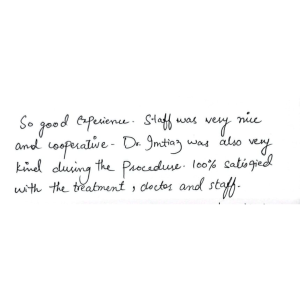 So good experience. Staff was very nice
and cooperative - Dr. Imtiaz was also very
kind during the Procedure. 100% satisfied
with the treatment, doctor and staff.